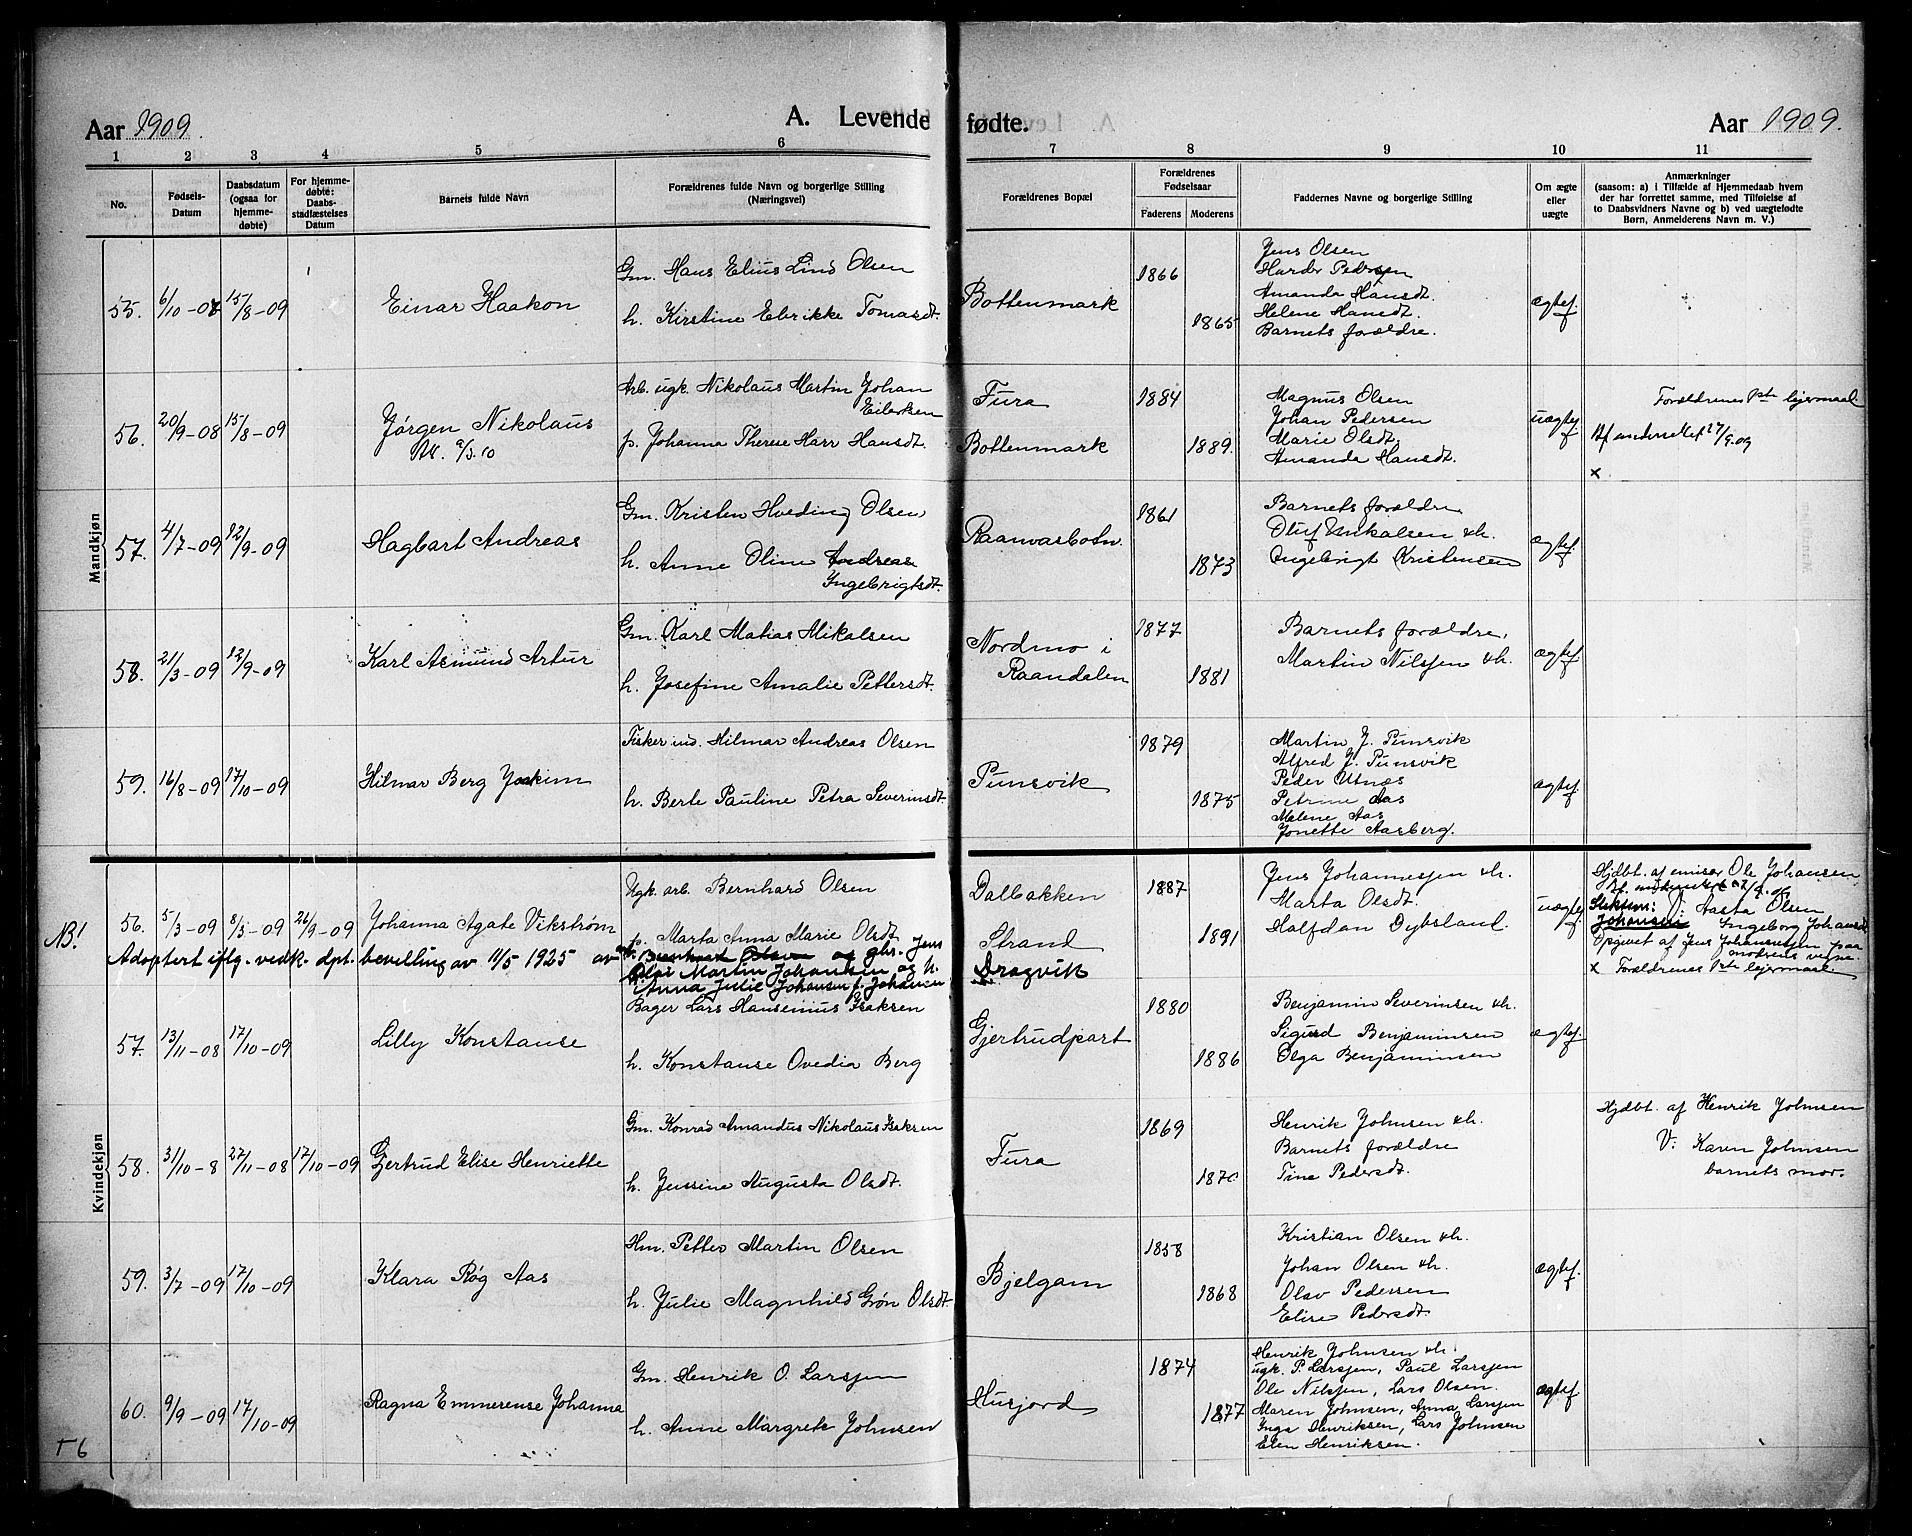 Aar 1909.
A. Levende fødte.
Aar 1909.
1 2 3 4 5 6 7 8 9 10 11
No.
Fødsels-
Datum
Daabsdatum
(ogsaa for
hjemme-
døbte)
For hjemme-
døbte:
Daabs-
stadfæstelses
Datum
Barnets fulde Navn
Forældrenes fulde Navn og borgerlige Stilling
(Næringsvei)
Forældrenes Bopæl
Forældrenes
Fødselsaar
Faderens Moderens
Faddernes Navne og borgerlige Stilling
Om ægte
eller
uægte
Anmærkninger
(saasom: a) i Tilfælde af Hjemmedaab hvem
der har forrettet samme, med Tilføielse af
to Daabsvidners Navne og b) ved uægtefødte
Børn, Anmelderens Navn m. V.)
Mandkjøn
55. 6/10-08 15/8-09 Einar Haakon
Gm. Hans Elius Lind Olsen
h. Kirstine Ebrikke Tomasdt.
Bottenmark
1866
1865
Jens Olsen
Harder Pedersen
Amanda Hansdt.
Helene Hansdt.
Barnets forældre.
ægtef.
56. 20/9-08 15/8-09 Jørgen Nikolaus
Arb. ugk. Nikolaus Martin Johan
Eilertsen
p. Johanna Therese Harr Hansdt.
Fura
Bottenmark
1884
1889.
Magnus Olsen
Johan Pedersen
Marie Olsdt.
Amanda Hansdt.
uægtef.
Forældrenes 1ste leiermaal
Bf underrettet 27/9.09
x
57. 4/7-09 12/9-09 Hagbart Andreas
Gm. Kristen Hveding Olsen
h. Anne Oline Andreas
Ingebrigtsdt.
Raanvasbotn.
1861
1873
Barnets forældre
Oluf Mikalsen &h.
Ingebrigt Kristensen
ægtef.
58. 21/3-09 12/9-09 Karl Asmund Artur
Gm. Karl Matias Mikalsen
h. Josefine Amalie Pettersdt.
Nordmo i
Raandalen
1877
1881
Barnets forældre.
Martin Nilsen &h.
ægtef.
59. 16/8-09 17/10-09 Hilmar Berg Joakim
Fisker ind. Hilmar Andreas Olsen
h. Berle Pauline Petra Severinsdt.
Punsvik
1879
1875
Martin J. Punsvik
Alfred J. Punsvik
Peder Utnæs
Petrine Aas
Malene Aas
Jonette Aasberg.
ægtef.
Kvindekjøn
NB!
56. 5/3-09 8/3-09 26/9-09 Johanna Agate Vikstrøm
Ugk. arb. Bernhard Olsen
p. Marta Anna Marie Olsdt.
Adoptert iflg. vedk. dpt. bevilling av 11/5 1925 av Bernhard Olsen og gbr. Jens
Olai Martin Johansen og h.
Anna Julie Johansen f. Johansen
Dalbakken
Strand
Dragvik
1887
1891
Jens Johannesen &h.
Marta Olsdt.
Halfdan Dybsland.
uægtef.
Hjdbt. af emisær Ole Johansen
Johansen Ingeborg Johansdt
Aasta Olsen
Opgivet af Jens Johannesen paa
modrens vegne
x Forældrenes 1ste leiermaal
57. 13/11-08 17/10-09 Lilly Konstanse
Bager Lars Hansenius Isaksen
h. Konstanse Ovedia Berg
Gjertrudpart
1880
1886
Benjamin Severinsen &h.
Sigurd Benjaminsen
Olga Benjaminsen
ægtef.
58. 31/10-8 27/11-08 17/10-09 Gjertrud Elise Henriette
Gm. Konrad Amandus Nikolaus Isaksen
h. Jensine Augusta Olsdt.
Fura
1869
1870
Henrik Johnsen &h.
Barnets forældre
Tina Pedersdt.
Hjdbt. af Henrik Johnsen
V: Karen Johnsen
barnets mor.
59. 3/7-09 17/10-09 Klara Røg Aas
Hm. Petter Martin Olsen
h. Julie Magnhild Grøn Olsdt.
Bjelgam
1858
1868
Kristian Olsen &h.
Johan Olsen &h.
Olav Pedersen
Elise Pedersdt.
ægtef.
60. 9/9-09 17/10-09 Ragna Emmerense Johanna
Gm. Henrik O. Larsen
h. Anne Margrete Johnsen
Husjord
1874
1877
Henrik Johnsen &h.
ugk. P. Larsen, Paul Larsen
Ole Nilsen, Lars Olsen.
Maren Johnsen, Anna Larsen
Inga Henriksen, Lars Johnsen
Elen Henriksen.
ægtef.